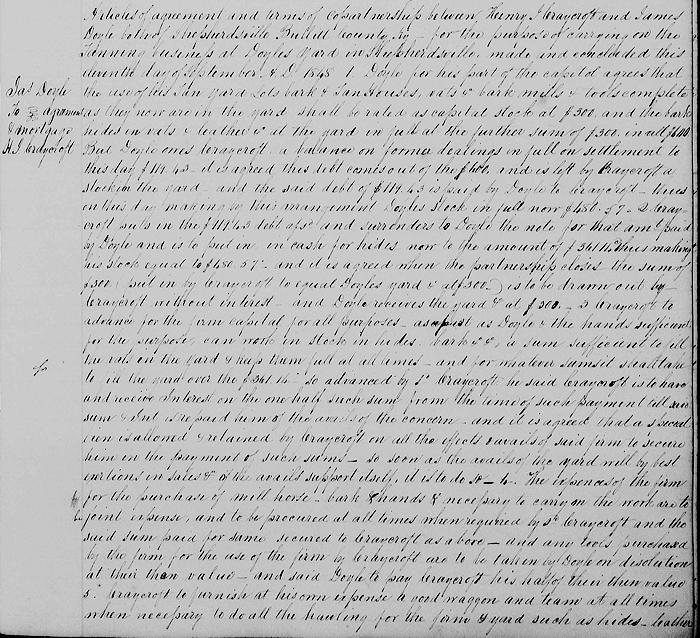 Articles of agreement and terms of copartnership between Henry J Craycroft and James
Doyle both of Shepherdsville Bullitt County Ky - for the purpose of carrying on the
Tanning business at Doyles Yard in Shepherdsville, made and concluded this
eleventh day of September A D 1848 1. Doyle for his part of the capitol agrees that
Jas Doyle
To agreement
& mortgage
H. J. Craycroft
the use of his Tan Yard Lots bark & Tan Houses, vats & bark mills & tools complete
as they now are in the yard shall be rated as capital stock at $300, and the bark
hides in vats & leather &c at the yard in full at the further sum of $300, in all $600
But Doyle owes Craycroft, a balance on former dealings in full on settlement to
this day $119.43 - it is agreed this debt comes out of the $600, and is left by Craycroft a
stock in the yard - and the said debt of $119.43 is paid by Doyle to Craycroft - thus
on this day making by this arrangement Doyles stock in full now $480.57 - 2 Cray-
croft puts in the $119.43 debt afsd and surrenders to Doyle the note for that amt paid
by Doyle and is to put in, in cash for hides now to the amount of $361.14 thus making
his stock equal to $480.57 - and it is agreed when the partnership closes the sum of
$300 (put in by Craycroft to equal Doyles yard &c at $300.) is to be drawn out by
Craycroft without interest - and Doyle receives the yard &c at $300. - 3 Craycroft to
advance for the firm capital for all purposes - as fast as Doyle & the hands sufficient
for the purpose, can work in stock in hides, bark &c, a sum sufficient to fill
the vats in the yard & keep them full at all times - and for whatever sums it shall take
to fill the yard over the $361.14 - so advanced by sd Craycroft he said Craycroft is to have
and receive Interest on the one half such sum from the time of such payment till said
sum & Int is repaid him of the avails of the concern - and it is agreed that a special
lien is allowed & retained by Craycroft on all the effects & avails of said firm to secure
him in the payment of such sums - so soon as the avails of the yard will by best
exertions in sales &c of the avails support itself, it is to do so - 4. The expences of the firm
for the purchase of mill horse - bark & hands & necessary to carry on the work are to
joint expense, and to be procured at all times when required by sd Craycroft and the
said sum paid for same secured to Craycroft as above - and any tools purchased
by the firm for the use of the firm by Craycroft are to be taken by Doyle on disolution
at their then value - and said Doyle to pay Craycroft his half of their then value
5. Craycroft to furnish at his own expense a good waggon and team at all times
when necessary to do all the hauling for the firm & yard such as hides - leather